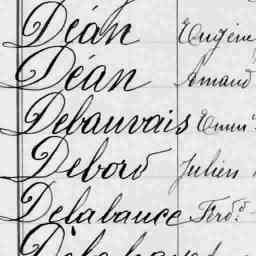 Déan Eugène
Déan Amand
Debauvais Emm.
Debord Julien
Delabance Ferd.d